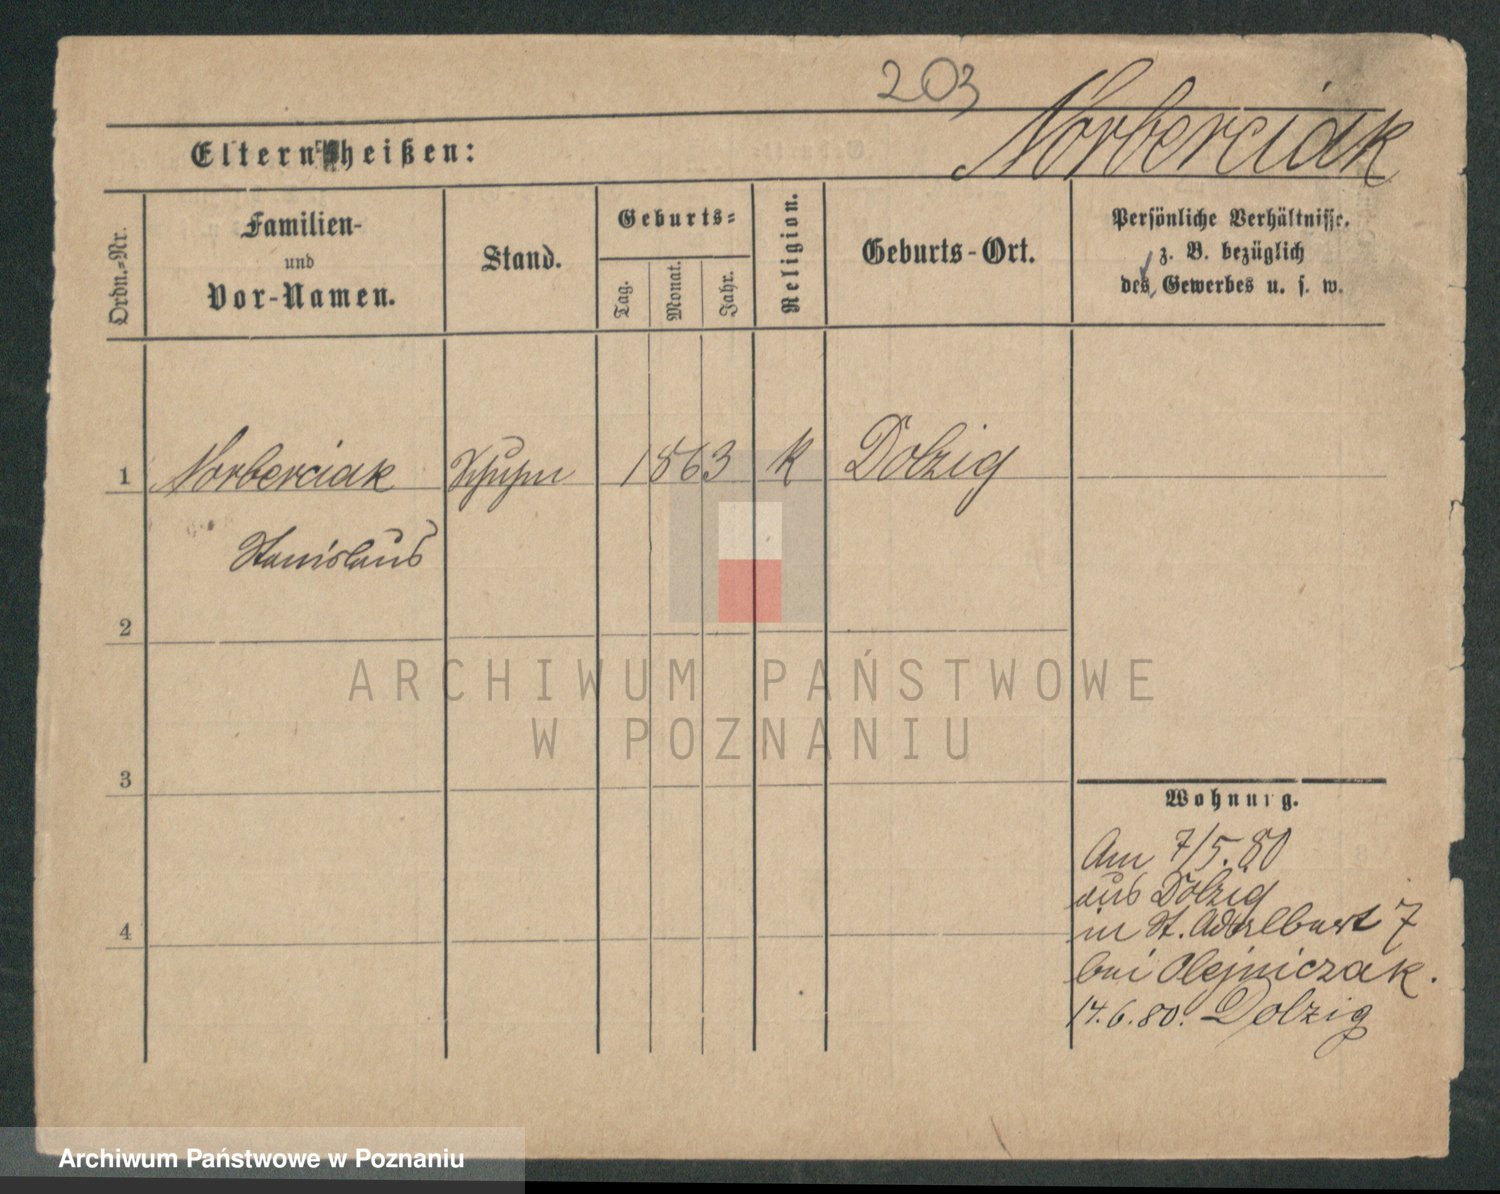 203
Norberciak
Eltern heißen:
Ordn.-Nr.
Familien-
und
Vor-Namen.
Stand.
Geburts-
Tag.
Monat.
Jahr.
Religion.
Geburts-Ort.
Persönliche Verhältnisse.
z. B. bezüglich
des Gewerbes u. s. w.
1 Norberciak 1863 k Dolzig
Stanislaus
2
3
4
Wohnung.
Am 7/5. 80
aus Dolzig
in St. Adalbert 7
bei Olejniczak.
14.6.80. Dolzig
ARCHIWUM PAŃSTWOWE
W POZNANIU
Archiwum Państwowe w Poznaniu